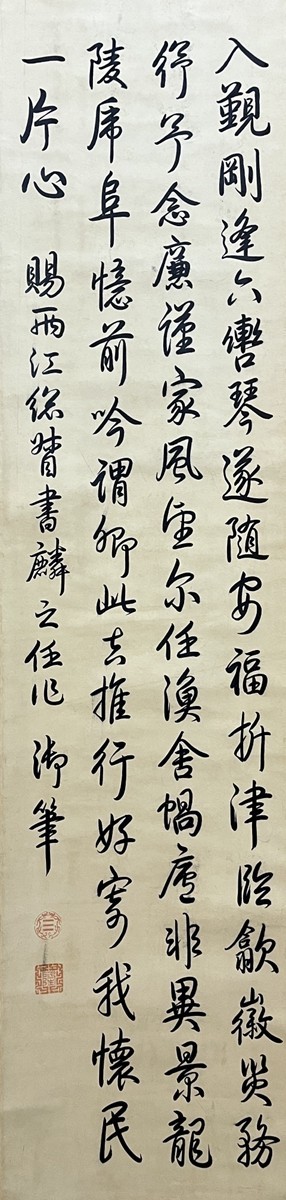 入覲剛逢六轡琴遂隨安福析津臨歙徽災務
紓予念廉謹家風望尔任漁舍蝸廬非異景龍
陵虎阜憶前吟謂卿此去推行好寄我懷民
一片心 賜兩江總督書麟之任作 御筆